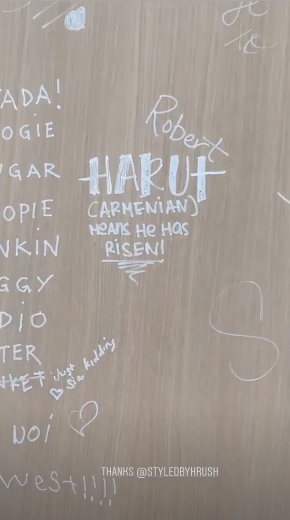 TADA!
OGIE
UGAR
OPIE
NKIN
GGY
DIO
TER
NKET
just kidding
Sis
NOI
West!!!!
Robert
HARUT
(ARMENIAN)
MEANS HE HAS
RISEN!
S
THANKS @STYLEDBYHRUSH